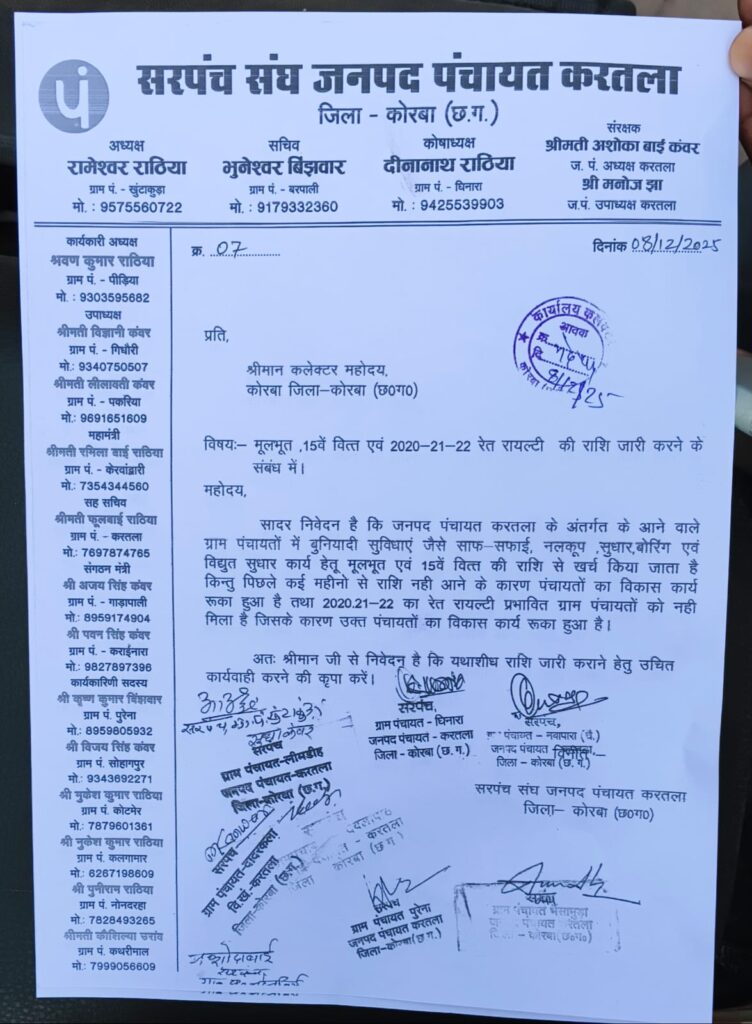 पं
सरपंच संघ जनपद पंचायत करतला
जिला - कोरबा (छ.ग.)
अध्यक्ष
रामेश्वर राठिया
ग्राम पं. - खुंटाकुड़ा
मो. : 9575560722
सचिव
भुनेश्वर बिंझवार
ग्राम पं. - बरपाली
मो. : 9179332360
कोषाध्यक्ष
दीनानाथ राठिया
ग्राम पं. - घिनारा
मो. : 9425539903
संरक्षक
श्रीमती अशोका बाई कंवर
ज. पं. अध्यक्ष करतला
श्री मनोज झा
ज.पं. उपाध्यक्ष करतला
कार्यकारी अध्यक्ष
श्रवण कुमार राठिया
ग्राम पं. - पीड़िया
मो. : 9303595682
उपाध्यक्ष
श्रीमती विज्ञानी कंवर
ग्राम पं. - गिधौरी
मो.: 9340750507
श्रीमती लीलावती कंवर
ग्राम पं. - पकरिया
मो.: 9691651609
महामंत्री
श्रीमती रमिला बाई राठिया
ग्राम पं. - केरवांद्वारी
मो.: 7354344560
सह सचिव
श्रीमती फूलबाई राठिया
ग्राम पं. - करतला
मो.: 7697874765
संगठन मंत्री
श्री अजय सिंह कंवर
ग्राम पं. - गाड़ापाली
मो.: 8959174904
श्री पवन सिंह कंवर
ग्राम पं. - कराईनारा
मो.: 9827897396
कार्यकारिणी सदस्य
श्री कृष्ण कुमार बिंझवार
ग्राम पं. पुरेना
मो.: 8959805932
श्री विजय सिंह कंवर
ग्राम पं. सोहागपुर
मो.: 9343692271
श्री मुकेश कुमार राठिया
ग्राम पं. कोटमेर
मो.: 7879601361
श्री नुकेश कुमार राठिया
ग्राम पं. कलगामार
मो.: 6267198609
श्री पुनीराम राठिया
ग्राम पं. नोनदरहा
मो.: 7828493265
श्रीमती कौशिल्या उरांव
ग्राम पं. कथरीमाल
मो.: 7999056609
क्र. 07
दिनांक 08/12/2025
प्रति,
कार्यालय
आवक
क्र.
दि. 8/12/25
कोरबा
श्रीमान कलेक्टर महोदय,
कोरबा जिला–कोरबा (छ0ग0)
विषयः– मूलभूत ,15वें वित्त एवं 2020-21-22 रेत रायल्टी की राशि जारी करने के
संबंध में।
महोदय,
सादर निवेदन है कि जनपद पंचायत करतला के अंतर्गत के आने वाले
ग्राम पंचायतों में बुनियादी सुविधाएं जैसे साफ-सफाई, नलकूप ,सुधार,बोरिंग एवं
विद्युत सुधार कार्य हेतू मूलभूत एवं 15वें वित्त की राशि से खर्च किया जाता है
किन्तु पिछले कई महीनो से राशि नही आने के कारण पंचायतों का विकास कार्य
रूका हुआ है तथा 2020.21–22 का रेत रायल्टी प्रभावित ग्राम पंचायतों को नही
मिला है जिसके कारण उक्त पंचायतों का विकास कार्य रूका हुआ है।
अतः श्रीमान जी से निवेदन है कि यथाशीध राशि जारी कराने हेतु उचित
कार्यवाही करने की कृपा करें।
सरपंच,
ग्राम पंचायत - घिनारा
जनपद पंचायत - करतला
जिला - कोरबा (छ.ग.)
सरपंच,
पंचायत - नवापारा (चै.)
जनपद पंचायत
जिला - कोरबा (छ.ग.)
विनीत
सरपंच संघ जनपद पंचायत करतला
जिला– कोरबा (छ0ग0)
सरपंच
ग्राम पंचायत-लीमडीह
जनपद पंचायत-करतला
जिला-कोरबा (छ.ग.)
सरपंच
ग्राम पंचायत-दादरकला
वि.खं. करतला
जिला-कोरबा (छ.ग.)
करतला
कोरबा (छ.ग.)
सरपंच
ग्राम पंचायत पुरेना
जनपद पंचायत करतला
जिला-कोरबा (छ.ग.)
सरपंच
ग्राम पंचायत भैसामुड़ा
करतला
कोरबा (छ०ग०)